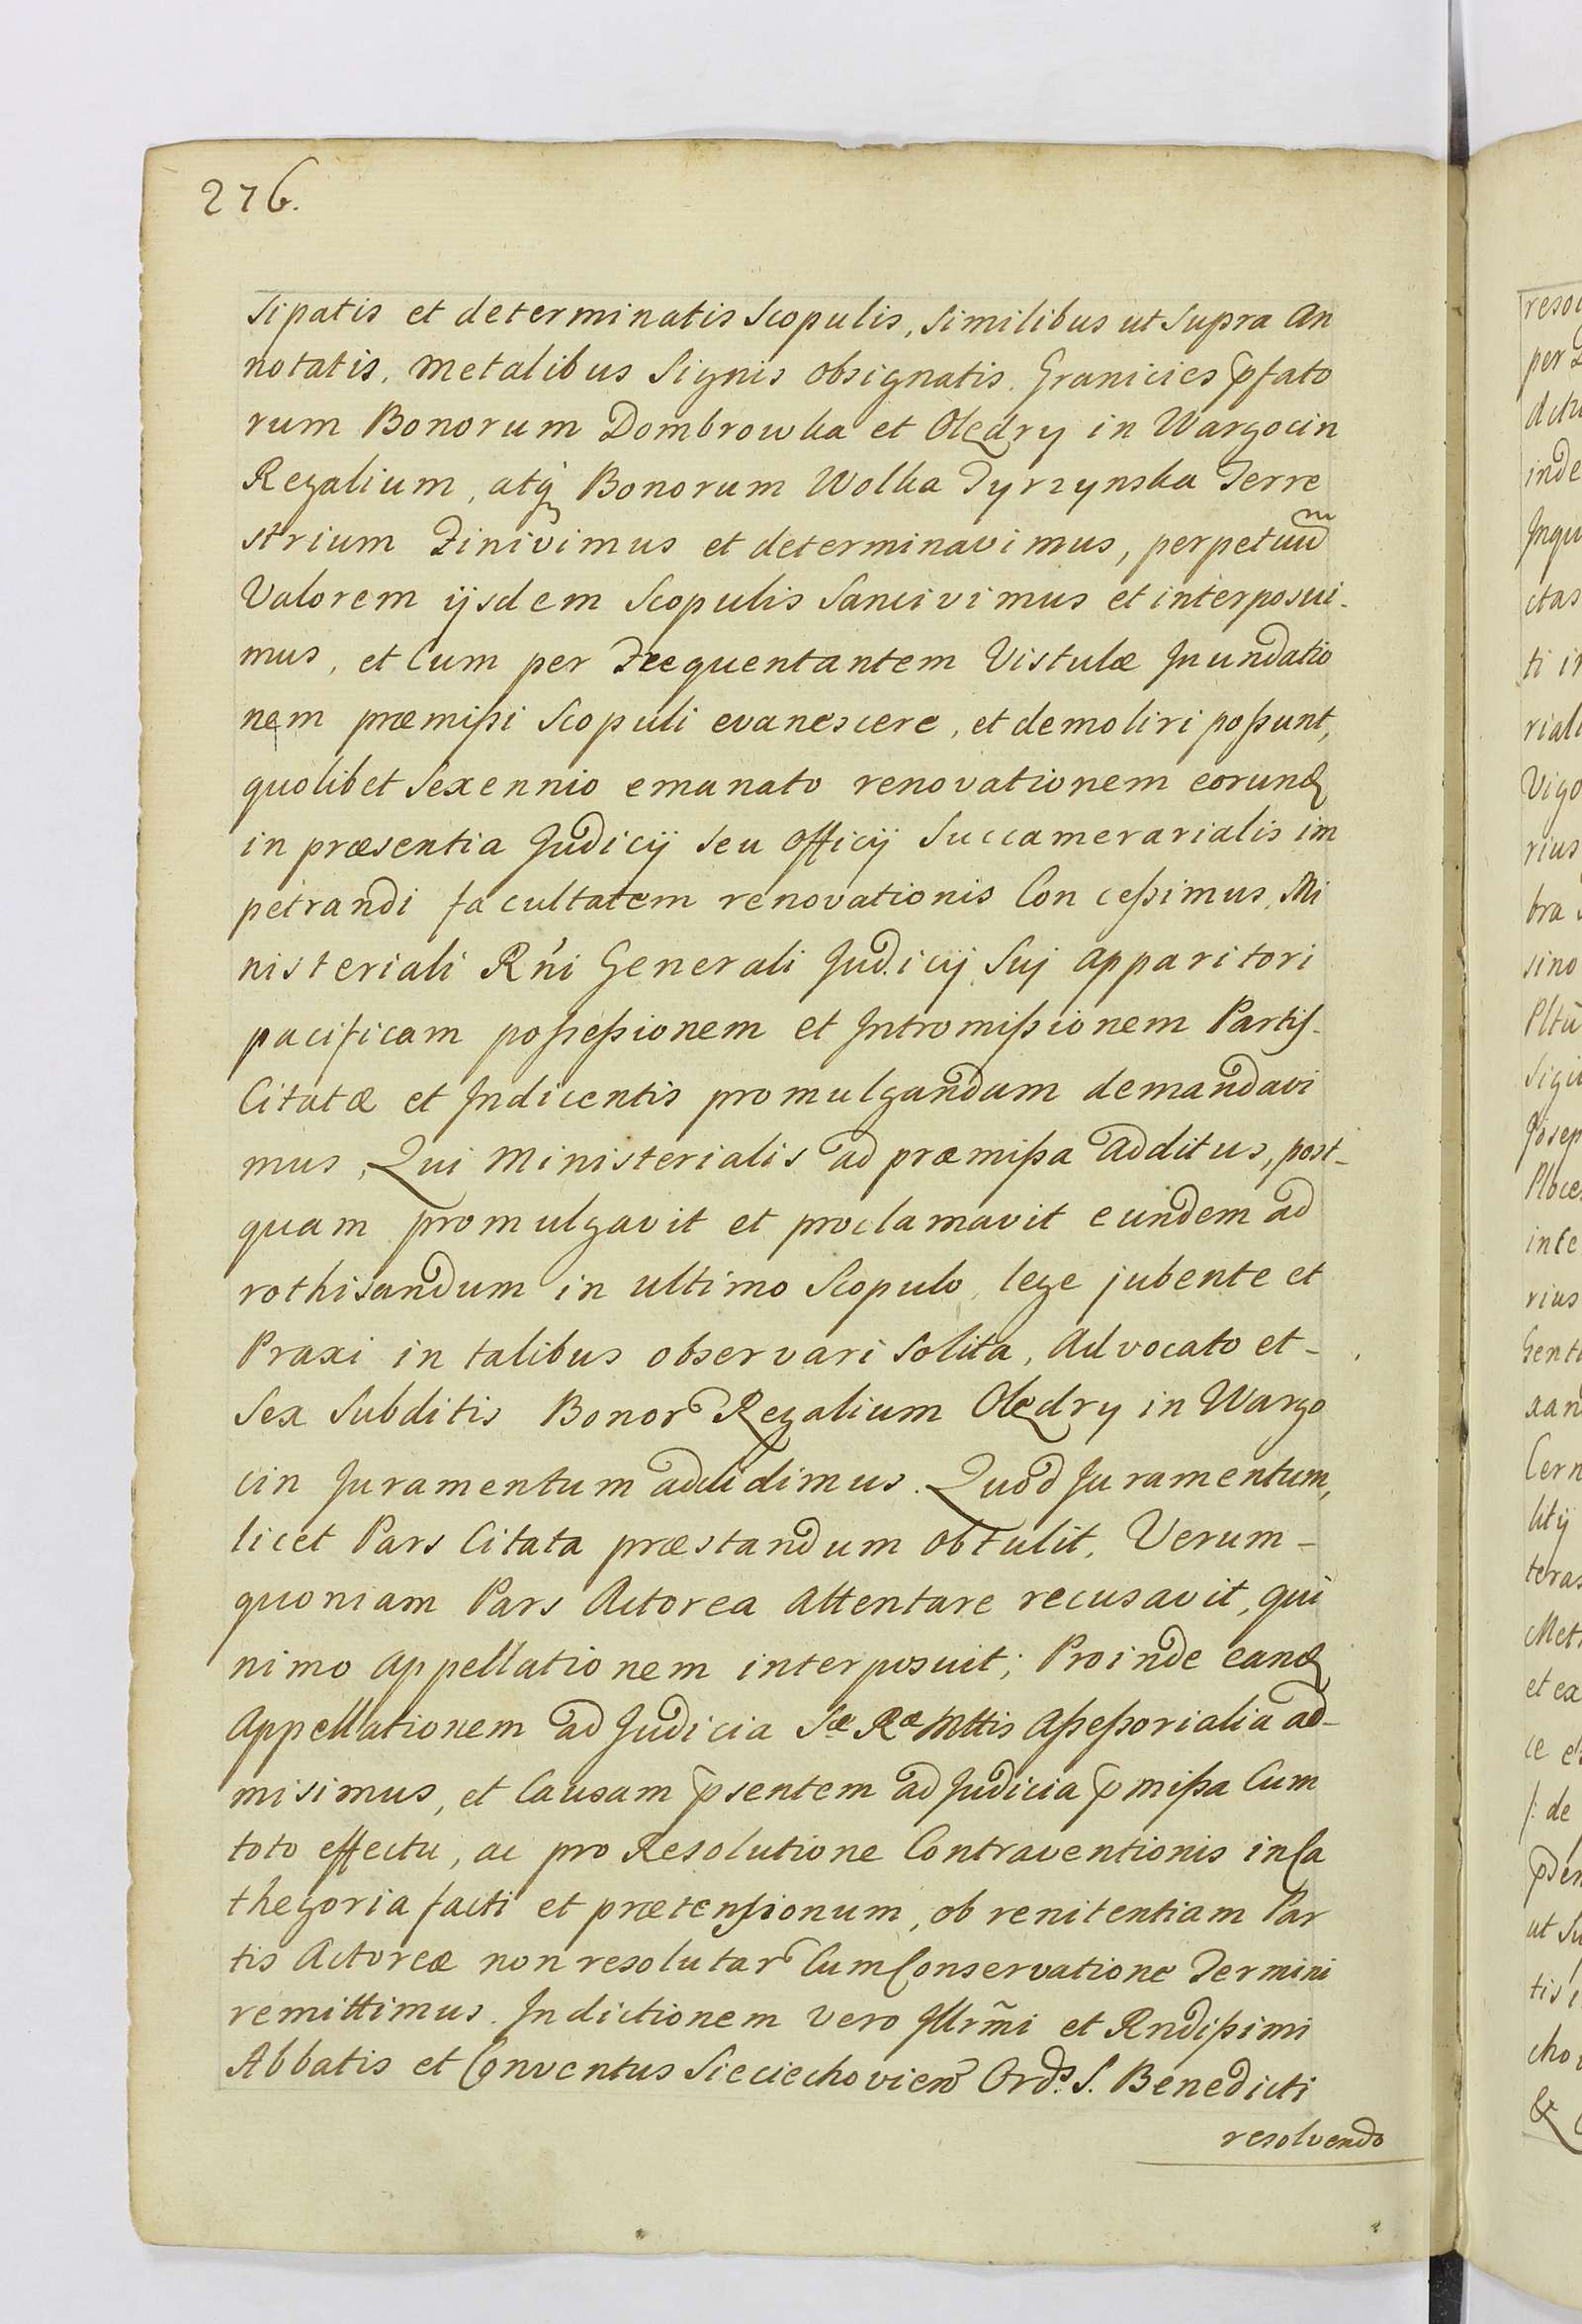 276.
sipatis et determinatis Scopulis, Similibus ut Supra an
notatis, metalibus Signis obsignatis. Granicies p̃fato
rum Bonorum Dombrowka et Olędry in Wargocin
Regalium, atq́ Bonorum Wolka Tyrzynska Terre
strium Finivimus et determinavimus, perpetuu͂m
Valorem ijsdem Scopulis Sancivimus et interposui-
mus, et Cum per Frequentantem Vistulæ Jnundatio
nem præmißi Scopuli evanescere, et demoliri poßunt,
quolibet Sexennio emanato renovationem eorund
in præsentia Judicij seu officij Succamerarialis im
petrandi facultatem renovationis Conceßimus, Mi
nisteriali Rńi Generali Judicij Sui apparitori
pacificam poßeßionem et Jntromißionem Partis-
Citatæ et Jndicentis promulgandam demandavi
mus, Qui Ministerialis ad præmißa additus, post-
quam promulgavit et proclamavit eundem ad
rothisandum in ultimo Scopulo, lege jubente et
Praxi in talibus observari Solita, Advocato et-
Sex Subditis Bonor̃ Regalium Olędry in Wargo
cin Juramentum addidimus. Quod Juramentum,
licet Pars Citata præstandum obtulit, Verum-
quoniam Pars Actorea attentare recusavit, qui
nimo appellationem interposuit; Proinde eand
Appellationem ad Judicia Sæ Ræ Mttis Aßeßorialia ad-
misimus, et Causam p̃sentem ad Judicia p̃mißa Cum
toto effectu, ac pro Resolutione Contraventionis in Ca
thegoria facti et prætensionum, ob renitentiam Par
tis Actoreæ non resolutar̃ Cum Conservatione Termini
remittimus. Jndictionem vero Jllrm̃i et Rndißimi
Abbatis et Conventus Sieciechovien̄ Ord̃s. S. Benedicti
resolvendo
per
inde
Jnqu
ctas
ti i
riali
Vigo
rius
bra
sino
Josep
inte
rius
xan
Cern
teras
et ex
ce e
/: de
tis
&